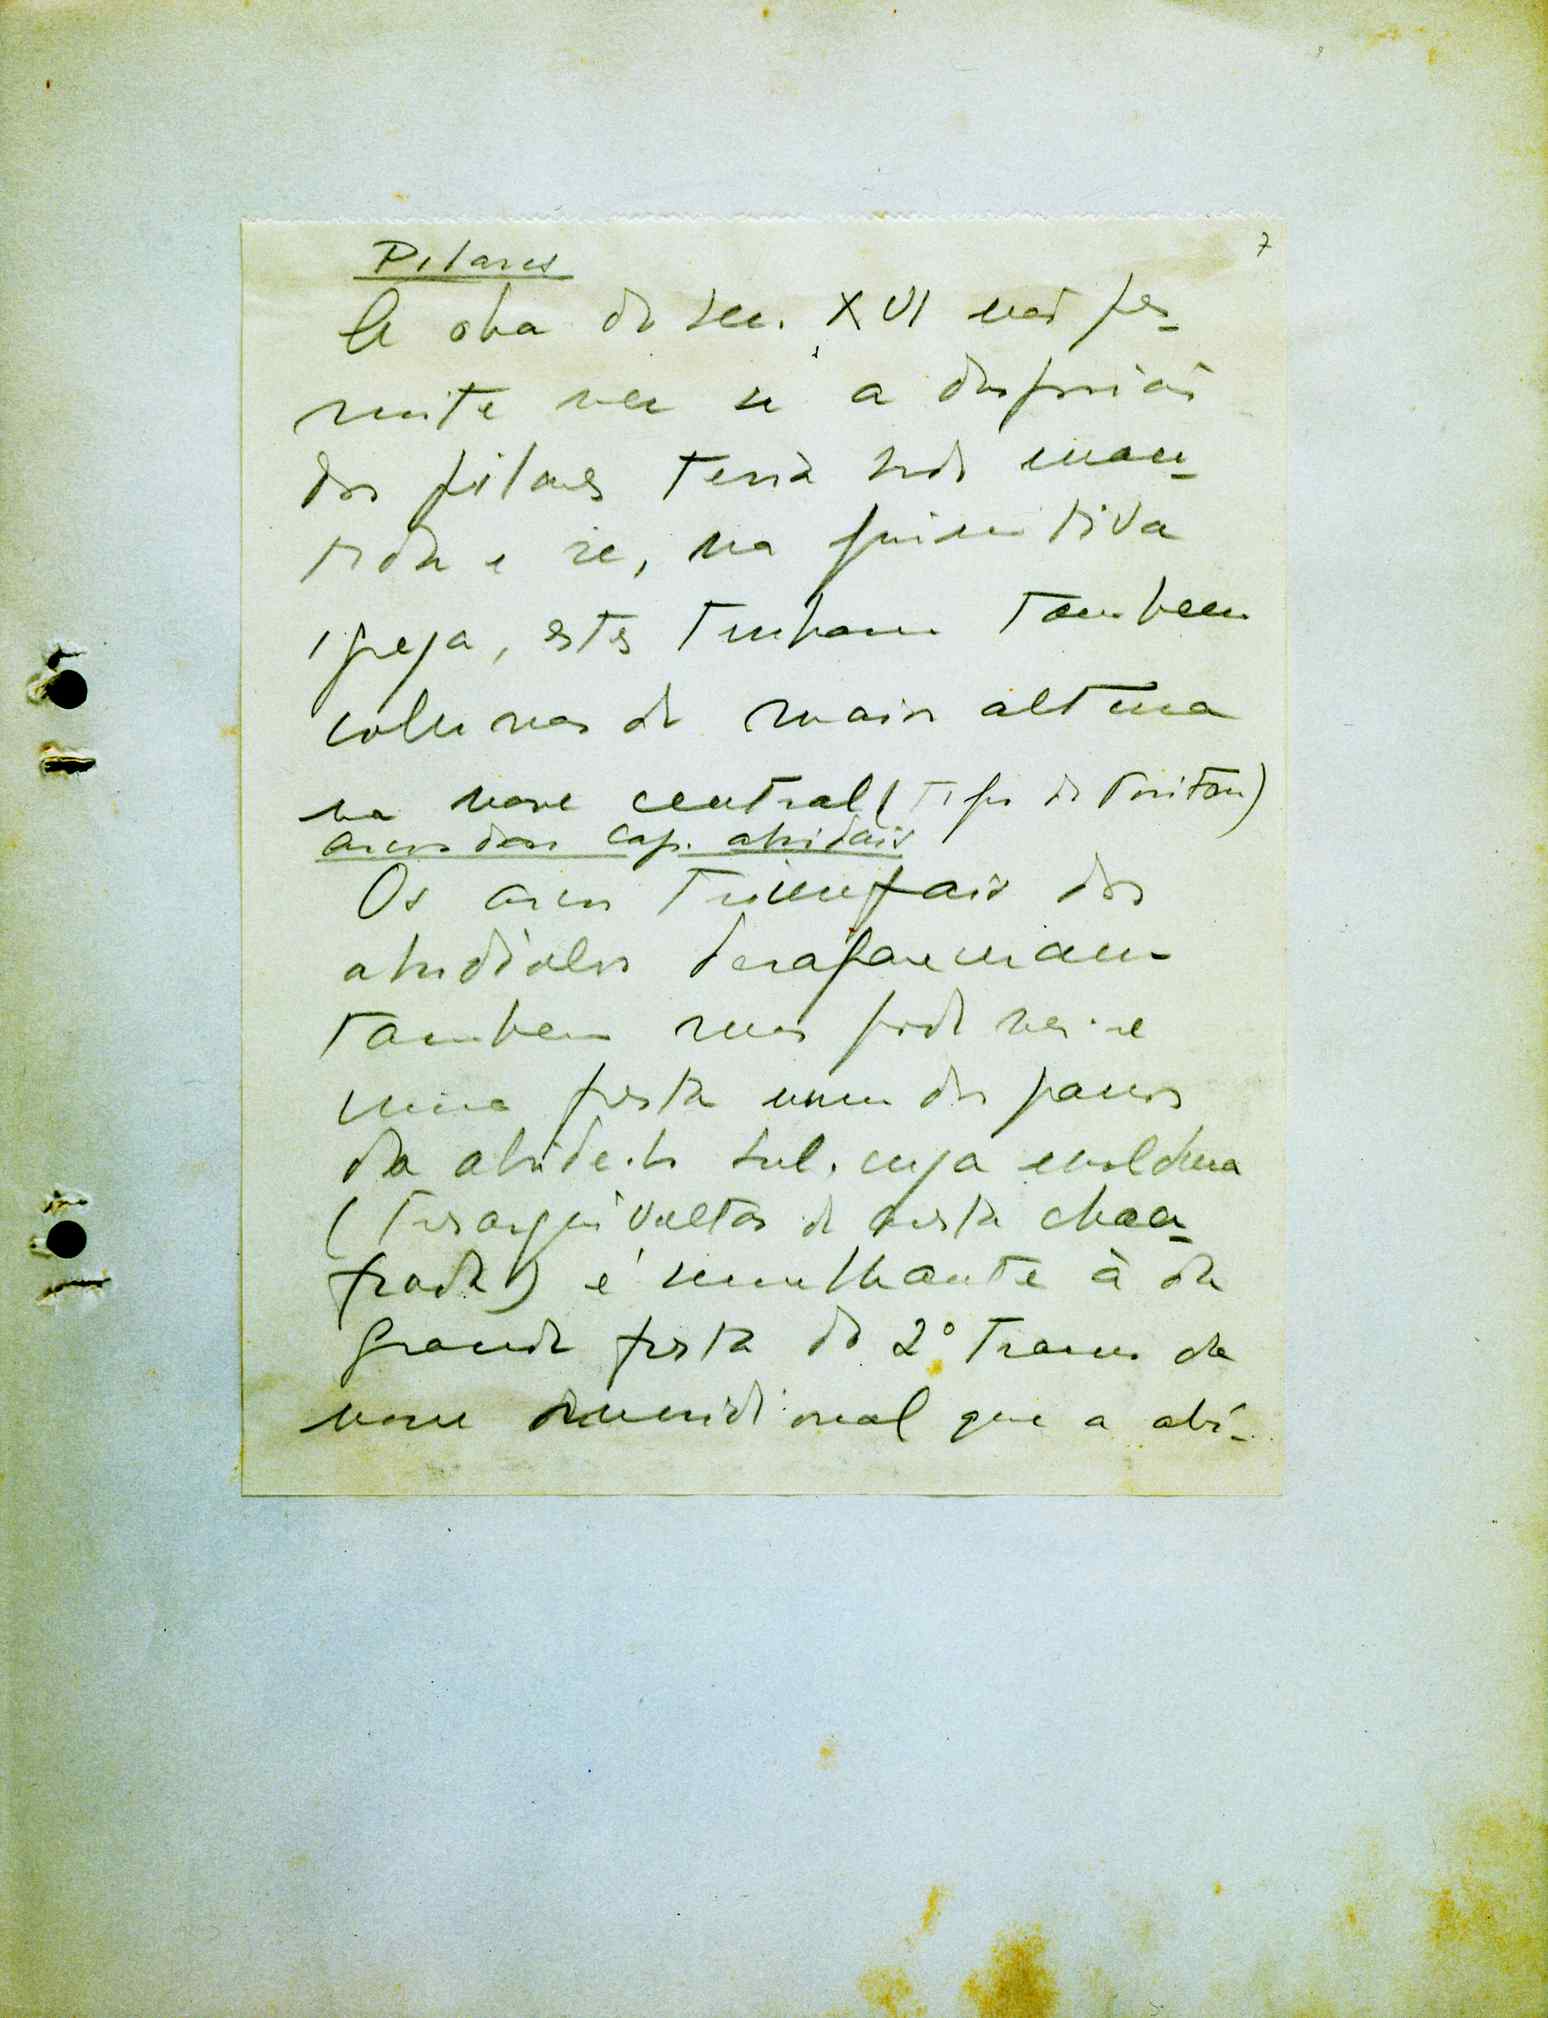 7
Pilares
A obra do sec. XVI não per-
mite ver se a disposição
dos pilares teria sido man-
tida e se, na primitiva
igreja, estes tinham tambem
colunas de maior altura
na nave central (tipo de
arcos das cap. absidais
Os arcos triumfais dos
absidiolos desapareceram
tambem mas pode ver-se
uma fresta num dos panos
da abside do sul, cuja moldura
(tres arquivoltas de aresta chan-
frada) é semelhante à da
grande fresta do 2º tramo da
nave meridional que a abí-